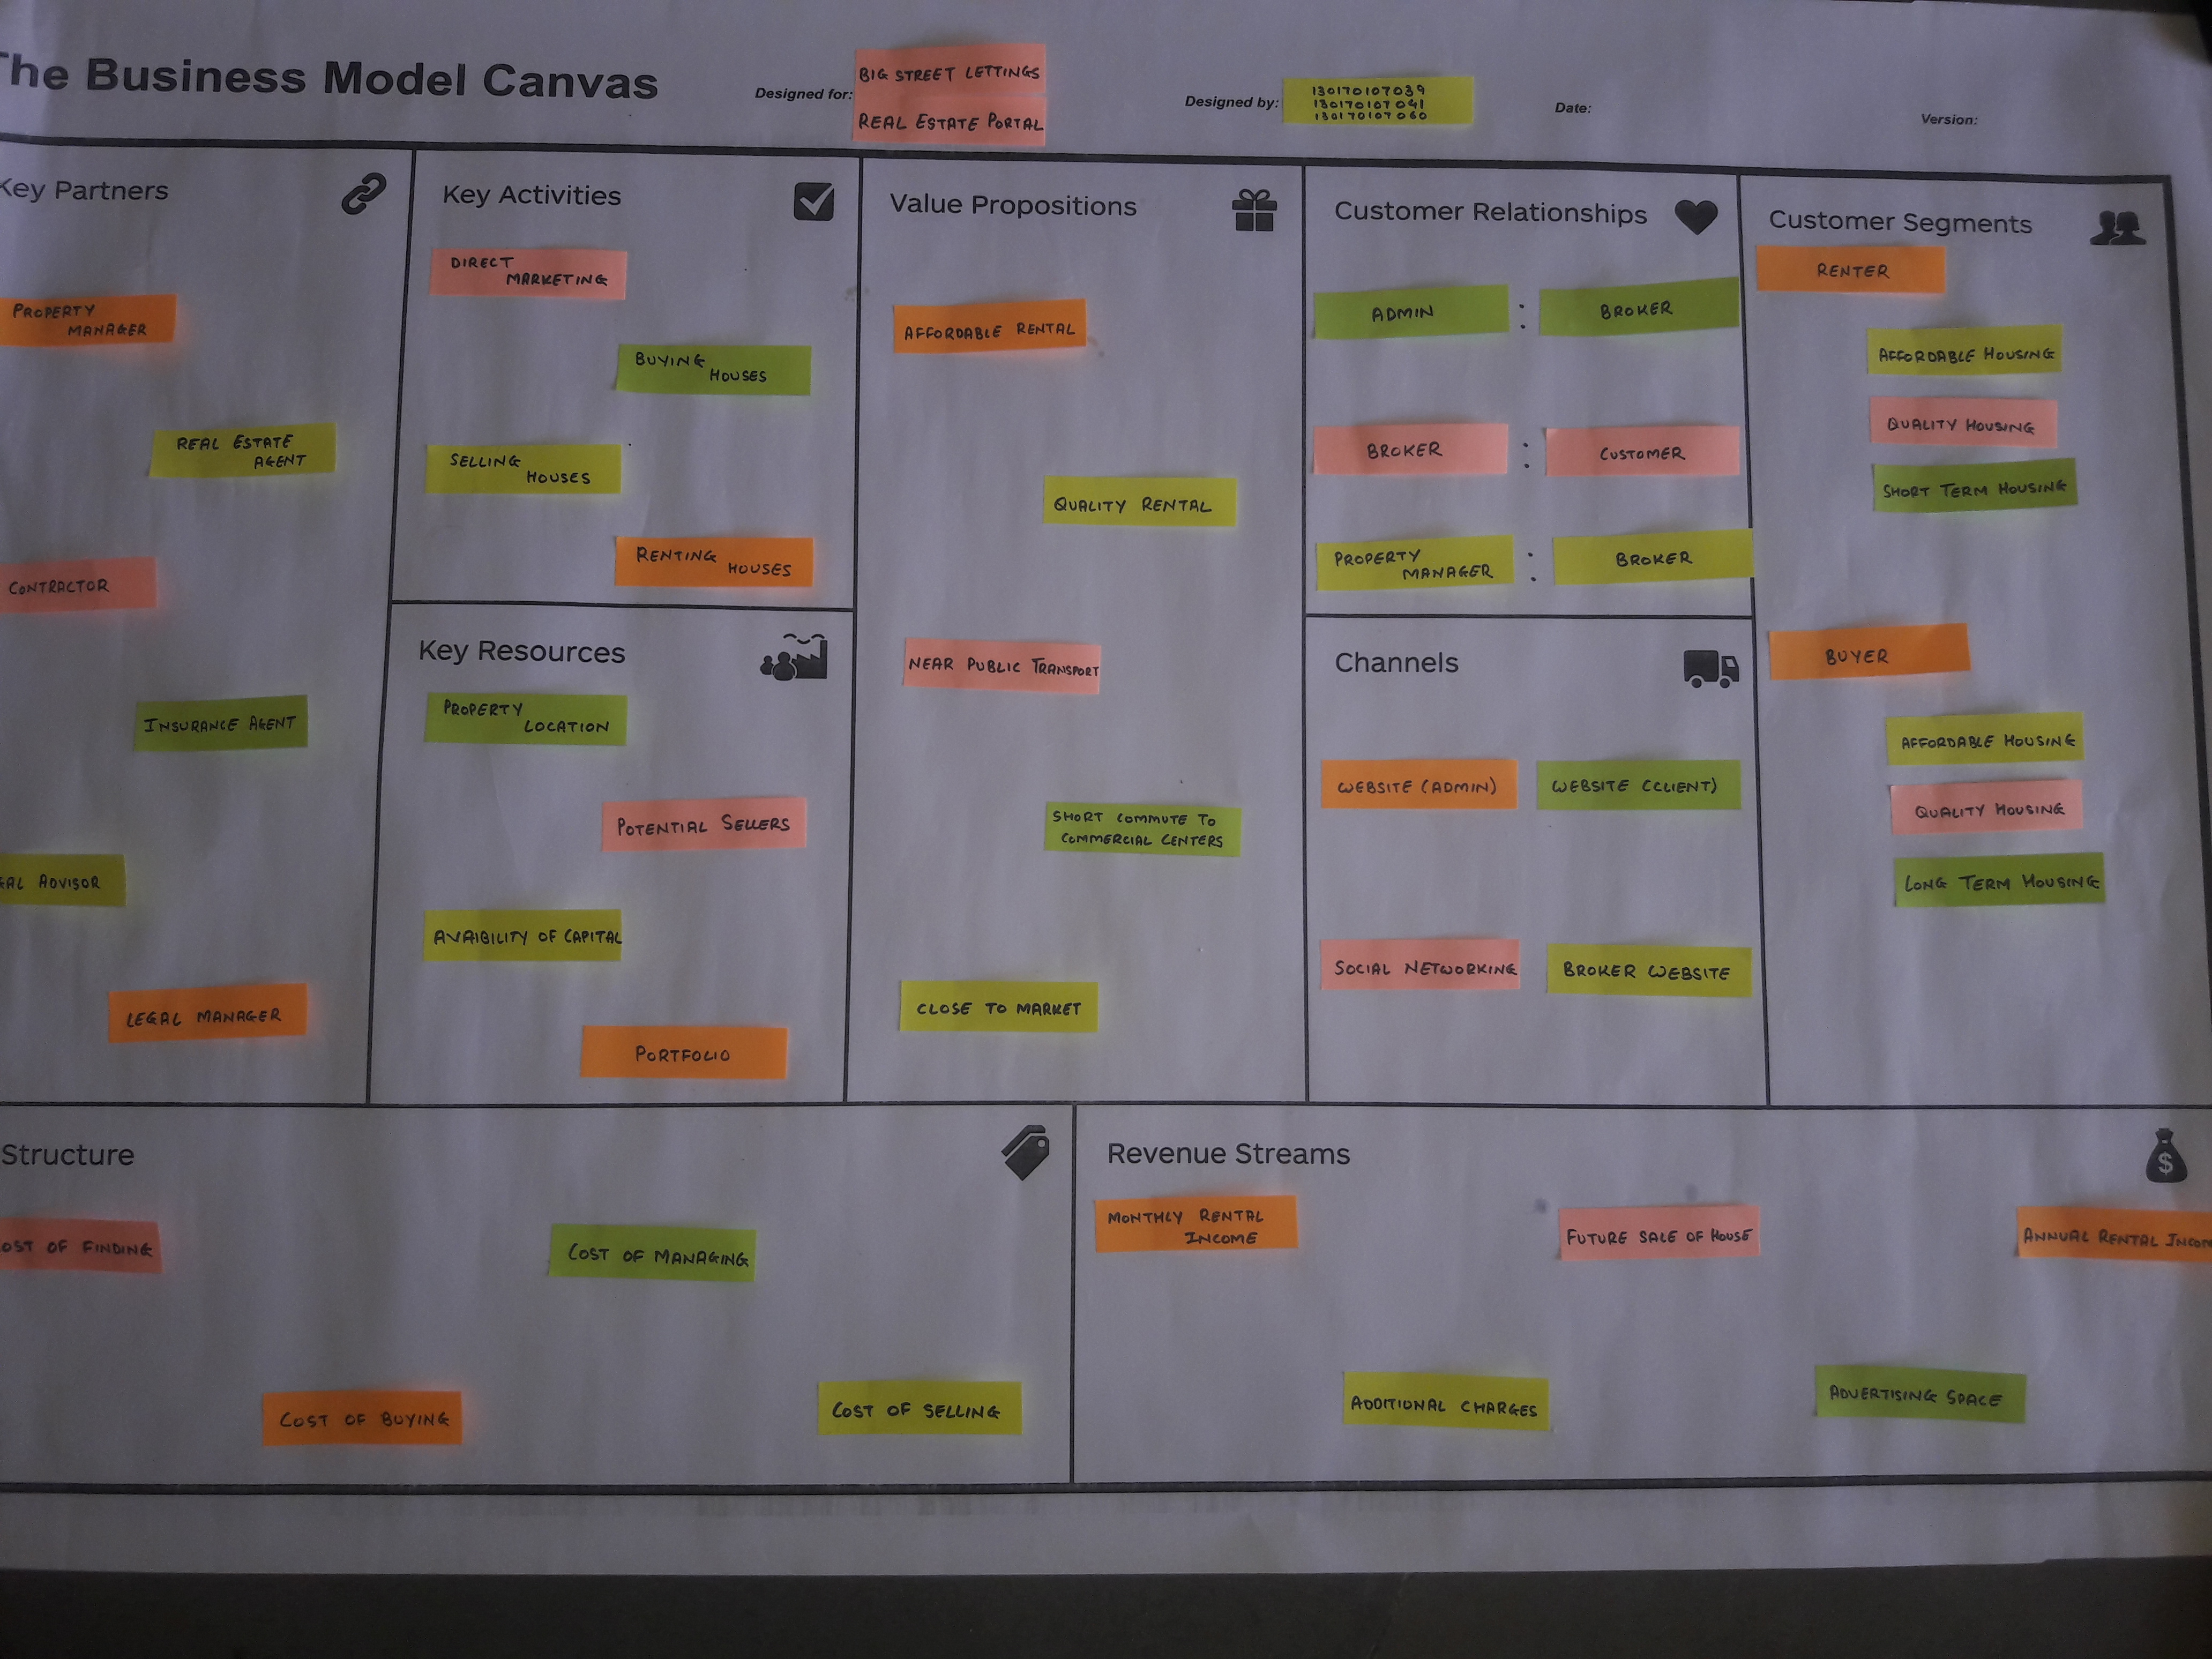 The Business Model Canvas
Designed for:
BIG STREET LETTINGS
REAL ESTATE PORTAL
Designed by:
130170107039
130170107041
130170107060
Date:
Version:
Key Partners
PROPERTY
MANAGER
REAL ESTATE
AGENT
CONTRACTOR
INSURANCE AGENT
ADVISOR
LEGAL MANAGER
Key Activities
DIRECT
MARKETING
BUYING HOUSES
SELLING HOUSES
RENTING HOUSES
Key Resources
PROPERTY
LOCATION
POTENTIAL SELLERS
AVAIBILITY OF CAPITAL
PORTFOLIO
Value Propositions
AFFORDABLE RENTAL
QUALITY RENTAL
NEAR PUBLIC TRANSPORT
SHORT COMMUTE TO
COMMERCIAL CENTERS
CLOSE TO MARKET
Customer Relationships
ADMIN : BROKER
BROKER : CUSTOMER
PROPERTY
MANAGER : BROKER
Channels
WEBSITE (ADMIN)
WEBSITE (CLIENT)
SOCIAL NETWORKING
BROKER WEBSITE
Customer Segments
RENTER
AFFORDABLE HOUSING
QUALITY HOUSING
SHORT TERM HOUSING
BUYER
AFFORDABLE HOUSING
QUALITY HOUSING
LONG TERM HOUSING
Structure
OST OF FINDING
COST OF BUYING
COST OF MANAGING
COST OF SELLING
Revenue Streams
MONTHLY RENTAL
INCOME
ADDITIONAL CHARGES
FUTURE SALE OF HOUSE
ADVERTISING SPACE
ANNUAL RENTAL INCOM